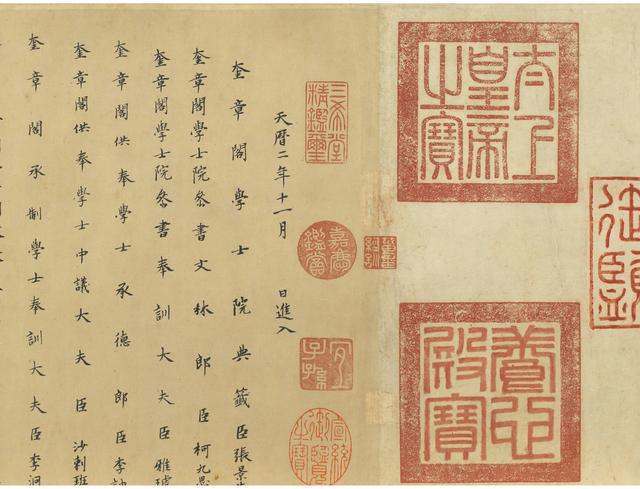 太上
皇帝
之寶
養心
殿寶
三希堂
精鑑璽
嘉慶
鑑賞
宜
子孫
宣統
御覽
之寶
天曆二年十一月 日進入
奎章閣學士院典籤臣張景
奎章閣學士院參書文林郎臣柯九思
奎章閣學士院參書奉訓大夫臣雅琥
奎章閣供奉學士承德郎臣李訥
奎章閣供奉學士中議大夫臣沙剌班
奎章閣承制學士奉訓大夫臣李泂